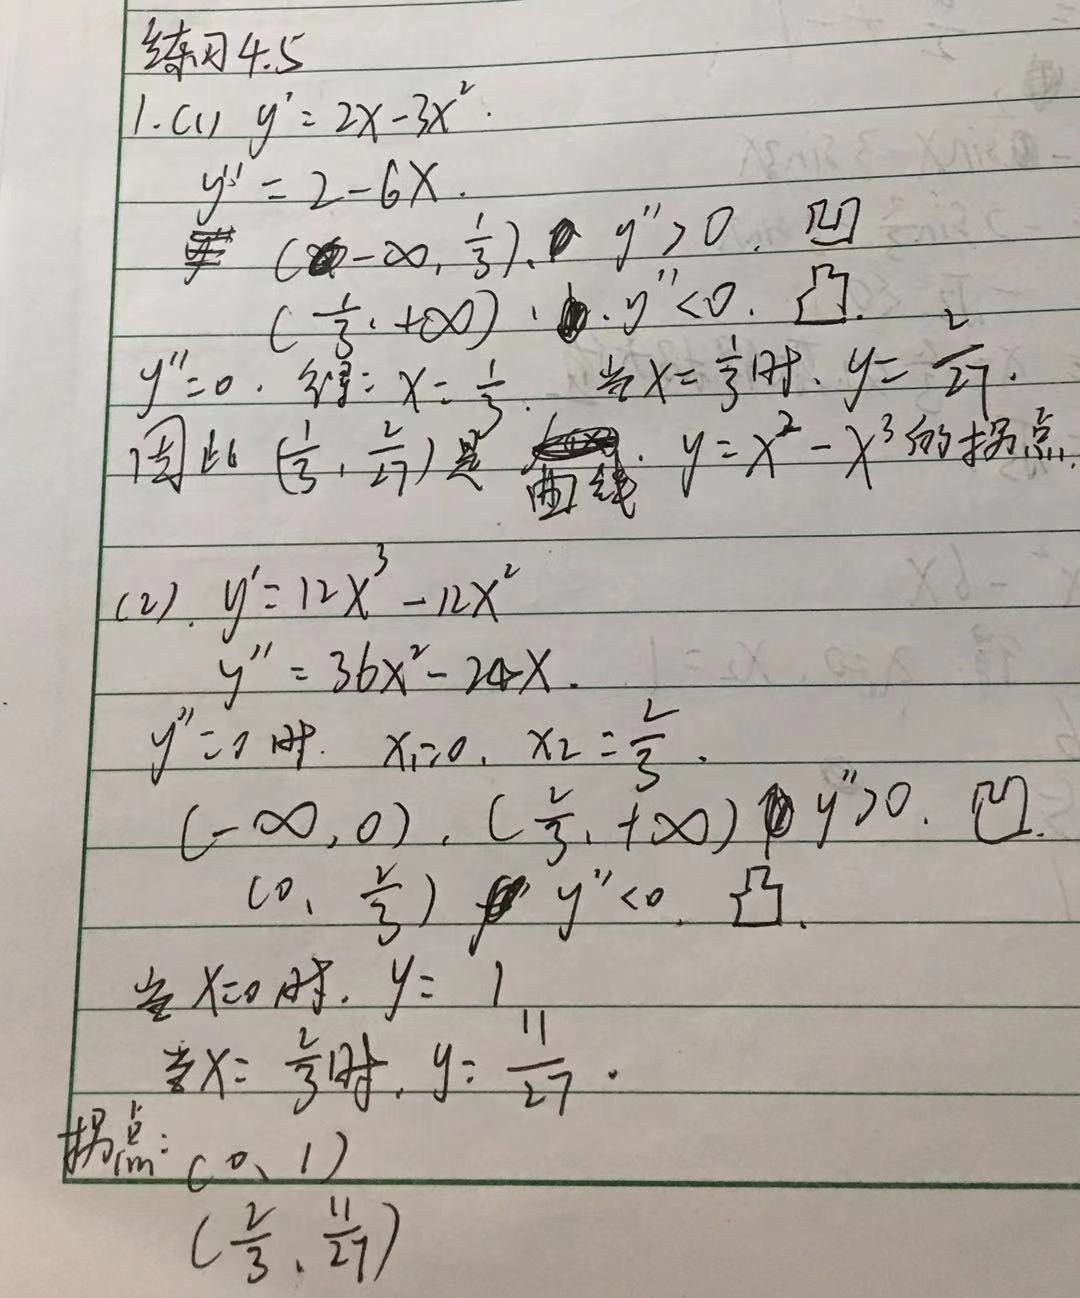 练习4.5
1.(1) y' = 2x-3x².
y'' = 2-6x.
(-∞, 1/3). y''>0. 凹
(1/3, +∞). y''<0. 凸.
y''=0. 得: x=1/3. 当x=1/3时. y=2/27.
因此 (1/3, 2/27) 是 曲线. y=x²-x³的拐点.
(2). y'=12x³-12x²
y''=36x²-24x.
y''=0时. x₁=0. x₂=2/3.
(-∞,0). (2/3, +∞) y''>0. 凹.
(0, 2/3) y''<0. 凸.
当x=0时. y= 1
当x=2/3时. y=11/27.
拐点: (0, 1)
(2/3, 11/27)